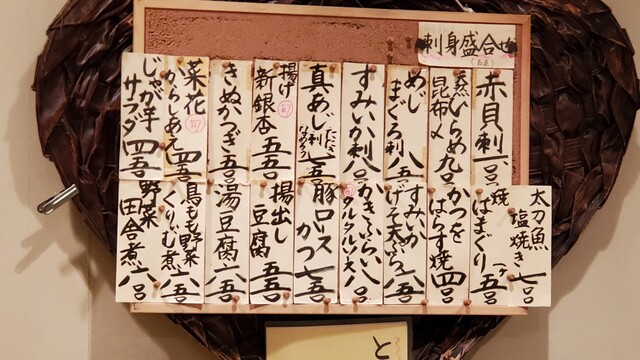 刺身盛合せ
(五点)
赤貝刺 一〇〇〇
ひらめ
昆布〆 九〇〇
めじ
まぐろ刺 八五〇
すみいか刺 八〇〇
真あじ刺 七五〇
たたき
なめろう
揚げ
新銀杏 五五〇
きぬかつぎ 五五〇
菜花
からしあえ 四五〇
じゃが芋
サラダ 四五〇
太刀魚
塩焼き 七〇〇
焼
はまぐり 五〇〇
かつを
はらす焼 四〇〇
すみいか
げそ天ぷら 八五〇
かきふらい 八〇〇
タルタルソース
豚ロース
かつ 七五〇
揚出し
豆腐 五五〇
湯豆腐 六五〇
鳥もも野菜
くりーむ煮 六五〇
野菜
田舎煮 六〇〇
と